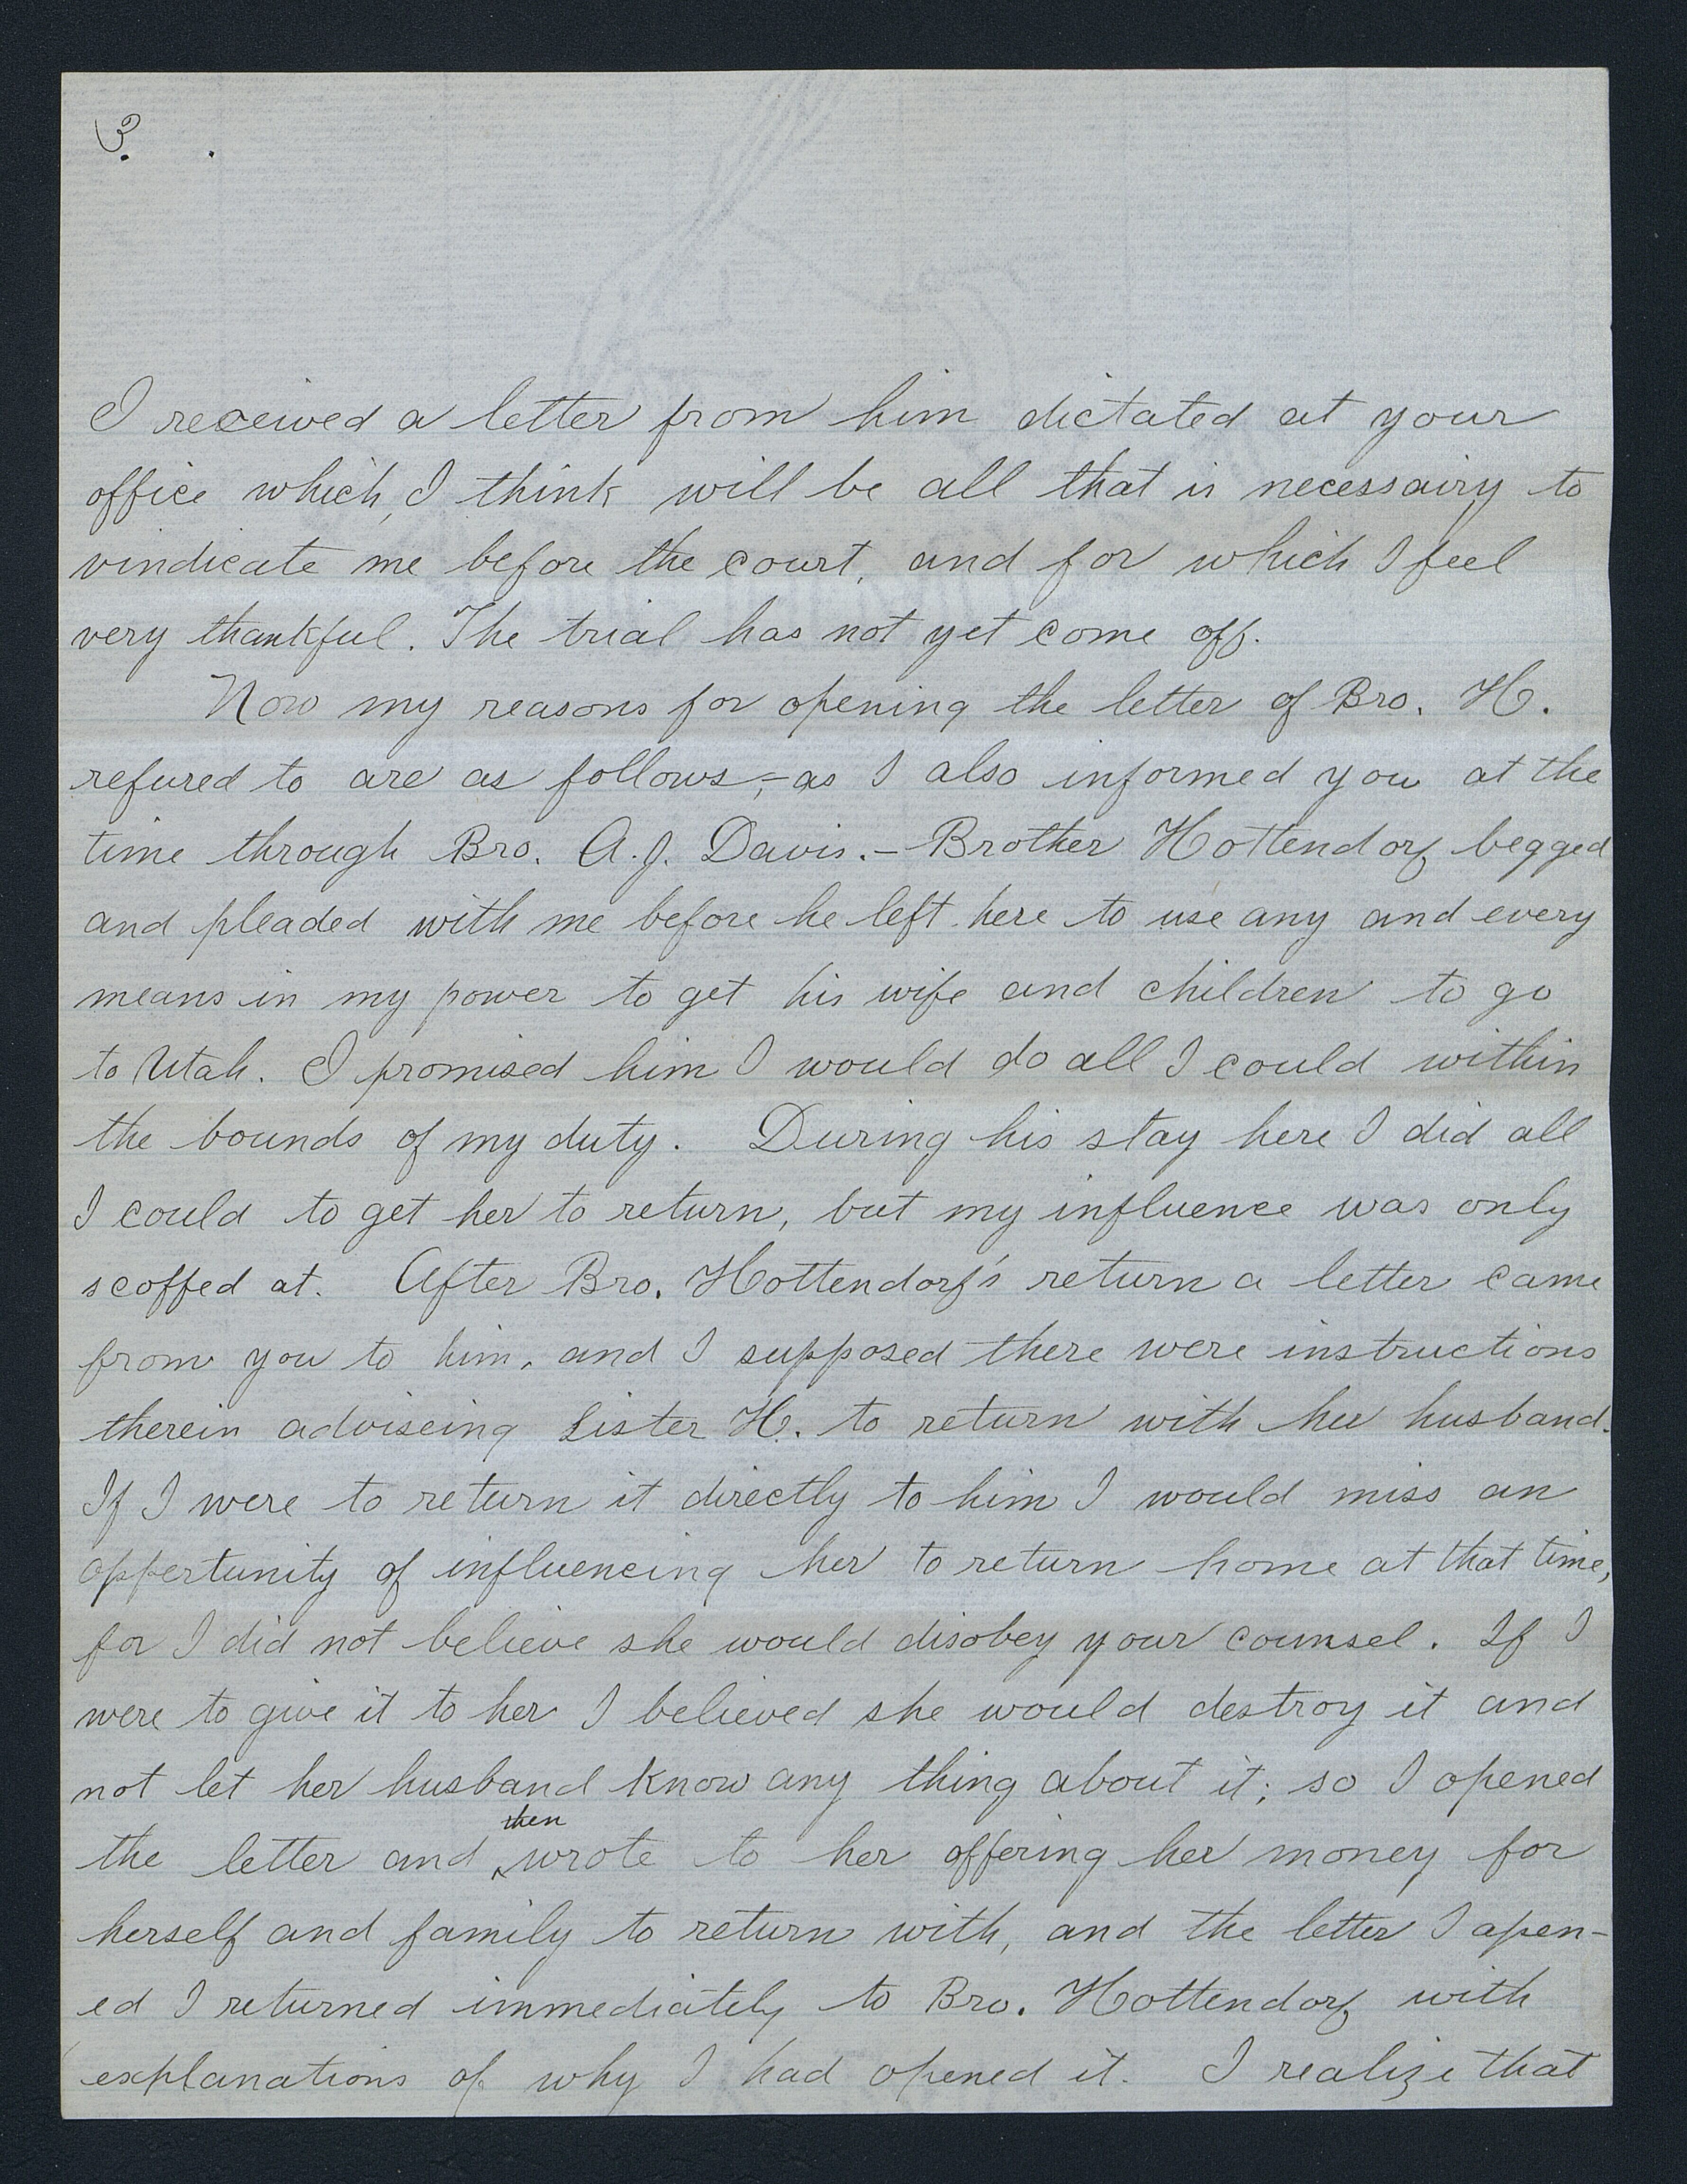 3.
I received a letter from him dictated at your
office which, I think will be all that is necessairy to
vindicate me before the court, and for which I feel
very thankful. The trial has not yet come off.
Now my reasons for opening the letter of Bro. H.
refured to are as follows,- as I also informed you at the
time through Bro. A.J. Davis.- Brother Hottendorf begged
and pleaded with me before he left here to use any and every
means in my power to get his wife and children to go
to Utah. I promised him I would do all I could within
the bounds of my duty. During his stay here I did all
I could to get her to return, but my influence was only
scoffed at. After Bro. Hottendorf's return a letter came
from you to him, and I supposed there were instructions
therein adviseing Sister H. to return with her husband.
If I were to return it directly to him I would miss an
oppertunity of influencing her to return home at that time,
for I did not believe she would disobey your counsel. If I
were to give it to her I believed she would destroy it and
not let her husband know any thing about it; so I opened
then
the letter and ‸ wrote to her offering her money for
herself and family to return with, and the letter I open-
ed I returned immediately to Bro. Hottendorf with
explanations of why I had opened it. I realize that